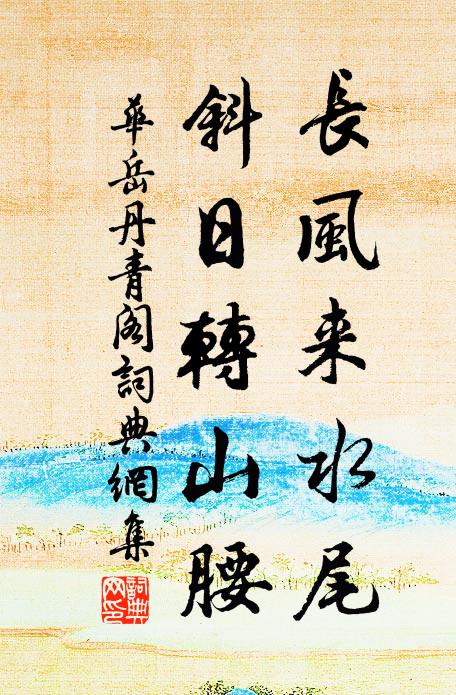 長風来水尾
斜日轉山腰
華岳丹青閣詞典網集